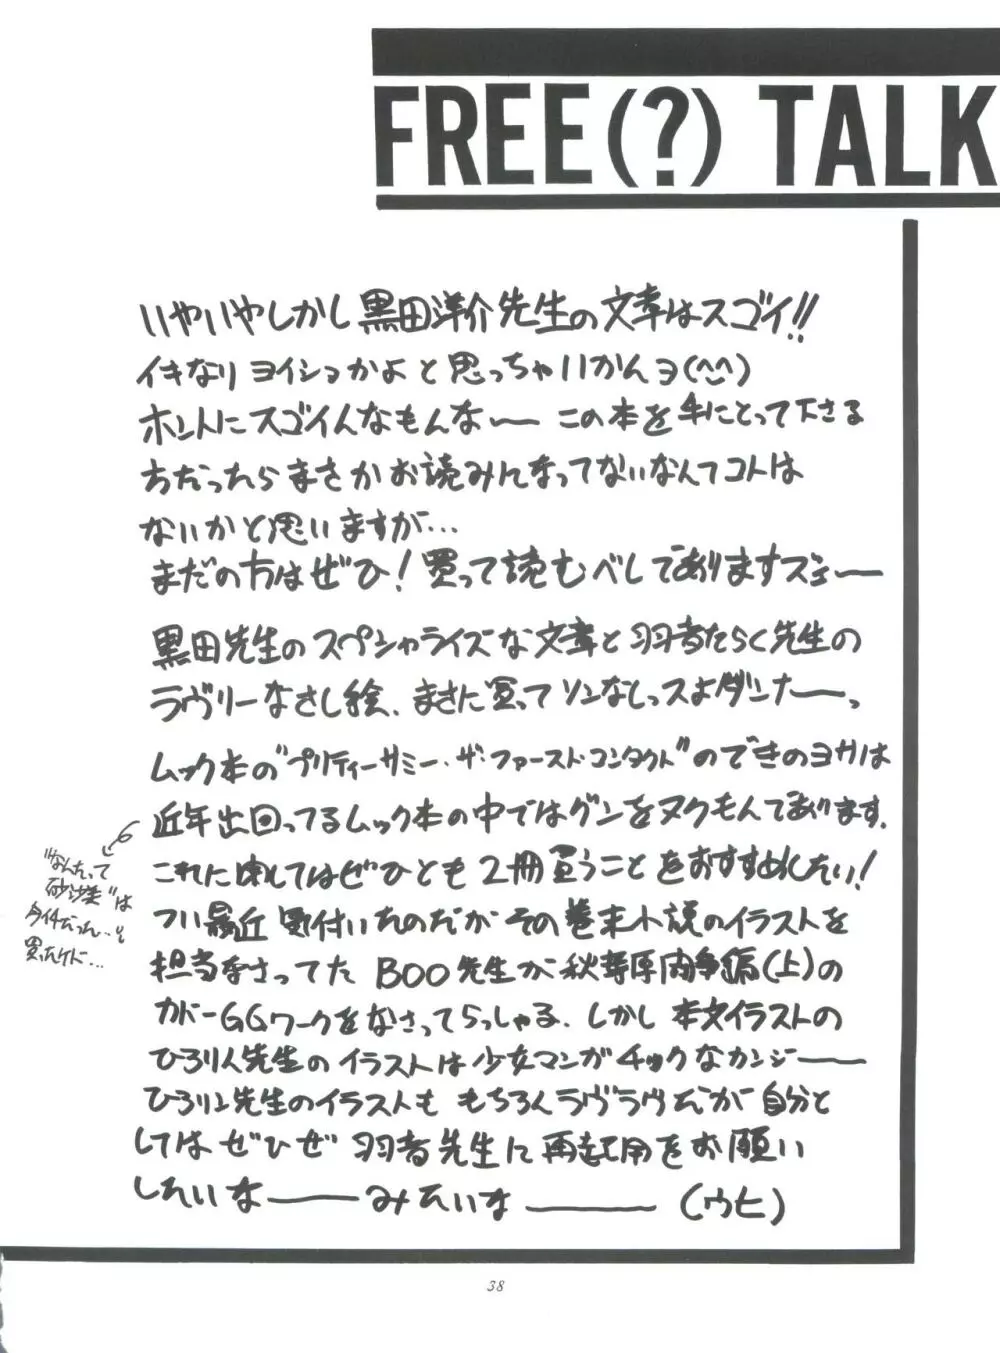 FREE(?) TALK
いやいやしかし黒田洋介先生の文章はスゴイ!!
イキなりヨイショかよと思っちゃいかんヨ(^^)
ホントにスゴイんなもんなー この本を手にとって下さる
方だったらまさかお読みんなってないなんてコトは
ないかと思いますが…
まだの方はぜひ!買って読むべしでありますズェー
黒田先生のスペシャライズな文章と羽者たらく先生の
ラヴリーなさし絵、まさに買ってソンなしっスよダンナーっ
ムック本の"プリティーサミー・ザ・ファースト・コンタクト"のできのヨサは
近年出回ってるムック本の中ではグンをヌクもんであります.
これに関してはぜひとも2冊買うことをおすすめしたい!
つい最近 気付いたのだが その巻末小説のイラストを
担当なさってた BOO先生が 秋葉原内争編(上)の
カバーCGワークをなさってらっしゃる. しかし 本文イラストの
ひろりん先生の イラストは 少女マンガチックなカンジー
ひろリン先生のイラストも もちろんラヴラヴだが 自分と
してはぜひぜ 羽者先生に 再起用をお願い
したいなー みたいなー (ウヒ)
"なんたって
砂沙美"は
買ったケド…
38